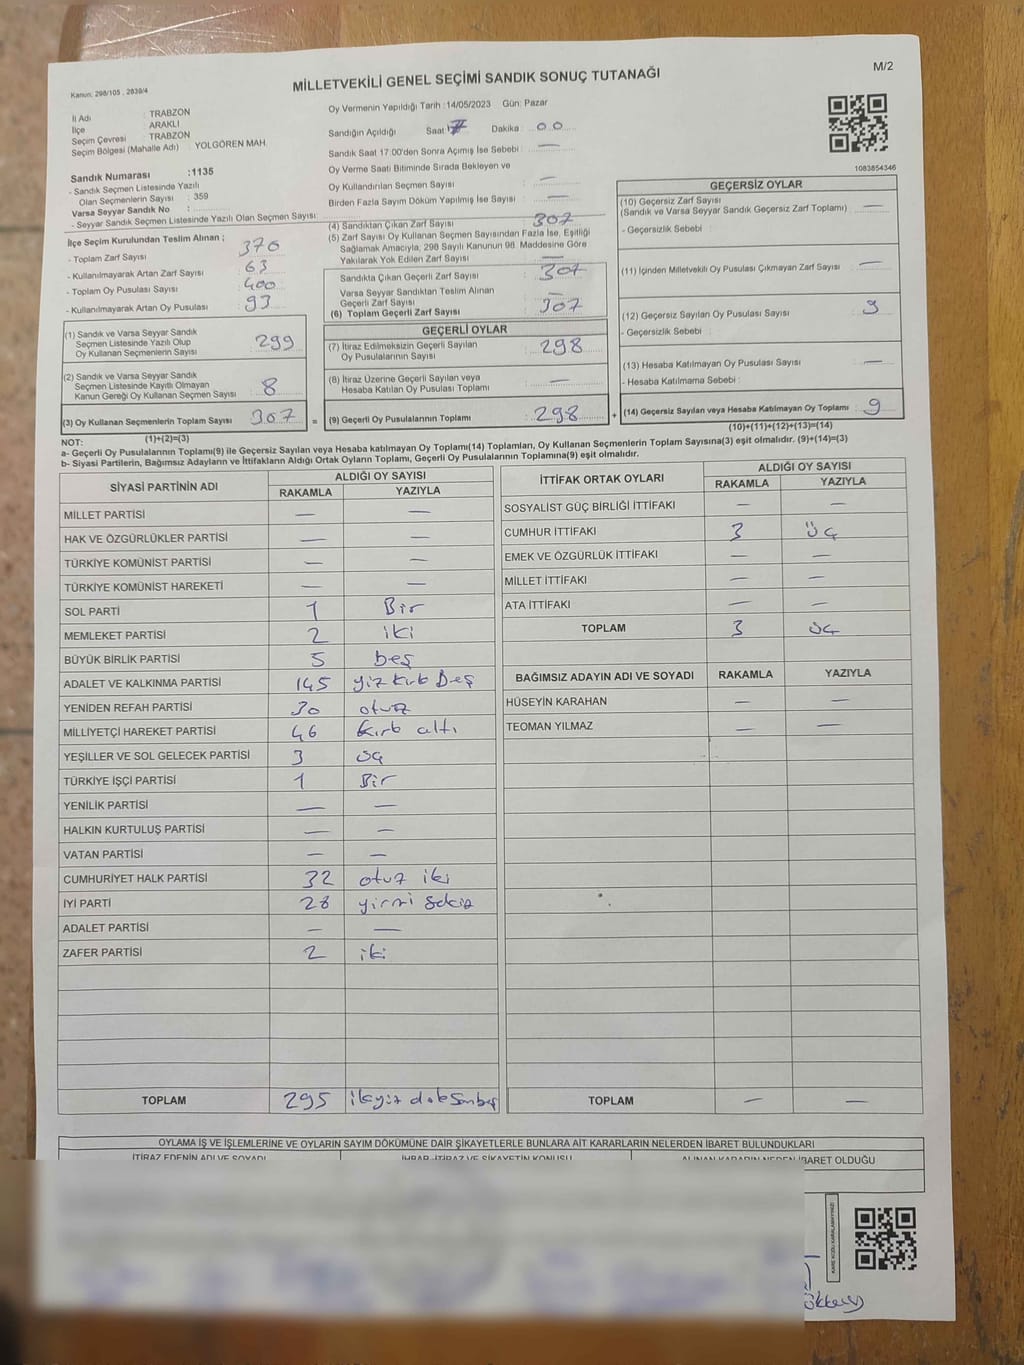 MİLLETVEKİLİ GENEL SEÇİMİ SANDIK SONUÇ TUTANAĞI
M/2
Kanun: 298/105 , 2839/4
İl Adı : TRABZON
İlçe ARAKLI
Seçim Çevresi : TRABZON
Seçim Bölgesi (Mahalle Adı) : YOLGÖREN MAH.
Sandık Numarası :1135
- Sandık Seçmen Listesinde Yazılı
Olan Seçmenlerin Sayısı : 359
Varsa Seyyar Sandık No :
- Seyyar Sandık Seçmen Listesinde Yazılı Olan Seçmen Sayısı:
Oy Vermenin Yapıldığı Tarih :14/05/2023 Gün: Pazar
Sandığın Açıldığı Saat 17 Dakika : 00
Sandık Saat 17:00'den Sonra Açımış İse Sebebi : —
Oy Verme Saati Bitiminde Sırada Bekleyen ve
Oy Kullandırılan Seçmen Sayısı : —
Birden Fazla Sayım Döküm Yapılmış İse Sayısı : —
1083854346
İlçe Seçim Kurulundan Teslim Alınan ;
- Toplam Zarf Sayısı : 370
- Kullanılmayarak Artan Zarf Sayısı : 63
- Toplam Oy Pusulası Sayısı : 400
- Kullanılmayarak Artan Oy Pusulası : 93
(1) Sandık ve Varsa Seyyar Sandık
Seçmen Listesinde Yazılı Olup
Oy Kullanan Seçmenlerin Sayısı : 299
(2) Sandık ve Varsa Seyyar Sandık
Seçmen Listesinde Kayıtlı Olmayan
Kanun Gereği Oy Kullanan Seçmen Sayısı : 8
(3) Oy Kullanan Seçmenlerin Toplam Sayısı : 307 =
(1)+(2)=(3)
(4) Sandıktan Çıkan Zarf Sayısı : 307
(5) Zarf Sayısı Oy Kullanan Seçmen Sayısından Fazla İse, Eşitliği
Sağlamak Amacıyla, 298 Sayılı Kanunun 98. Maddesine Göre
Yakılarak Yok Edilen Zarf Sayısı : —
Sandıkta Çıkan Geçerli Zarf Sayısı : 307
Varsa Seyyar Sandıktan Teslim Alınan
Geçerli Zarf Sayısı : —
(6) Toplam Geçerli Zarf Sayısı : 307
GEÇERLİ OYLAR
(7) İtiraz Edilmeksizin Geçerli Sayılan
Oy Pusulalarının Sayısı : 298
(8) İtiraz Üzerine Geçerli Sayılan veya
Hesaba Katılan Oy Pusulası Toplamı : —
(9) Geçerli Oy Pusulalarının Toplamı : 298 +
GEÇERSİZ OYLAR
(10) Geçersiz Zarf Sayısı
(Sandık ve Varsa Seyyar Sandık Geçersiz Zarf Toplamı) : —
- Geçersizlik Sebebi :
(11) İçinden Milletvekili Oy Pusulası Çıkmayan Zarf Sayısı : —
(12) Geçersiz Sayılan Oy Pusulası Sayısı : 9
- Geçersizlik Sebebi :
(13) Hesaba Katılmayan Oy Pusulası Sayısı : —
- Hesaba Katılmama Sebebi :
(14) Geçersiz Sayılan veya Hesaba Katılmayan Oy Toplamı : 9
(10)+(11)+(12)+(13)=(14)
NOT:
a- Geçerli Oy Pusulalarının Toplamı(9) ile Geçersiz Sayılan veya Hesaba katılmayan Oy Toplamı(14) Toplamları, Oy Kullanan Seçmenlerin Toplam Sayısına(3) eşit olmalıdır. (9)+(14)=(3)
b- Siyasi Partilerin, Bağımsız Adayların ve İttifakların Aldığı Ortak Oyların Toplamı, Geçerli Oy Pusulalarının Toplamına(9) eşit olmalıdır.
SİYASİ PARTİNİN ADI ALDIĞI OY SAYISI
RAKAMLA YAZIYLA
MİLLET PARTİSİ — —
HAK VE ÖZGÜRLÜKLER PARTİSİ — —
TÜRKİYE KOMÜNİST PARTİSİ — —
TÜRKİYE KOMÜNİST HAREKETİ — —
SOL PARTİ 1 Bir
MEMLEKET PARTİSİ 2 iki
BÜYÜK BİRLİK PARTİSİ 5 beş
ADALET VE KALKINMA PARTİSİ 145 yüz kırk Beş
YENİDEN REFAH PARTİSİ 30 otuz
MİLLİYETÇİ HAREKET PARTİSİ 46 kırk altı
YEŞİLLER VE SOL GELECEK PARTİSİ 3 üç
TÜRKİYE İŞÇİ PARTİSİ 1 Bir
YENİLİK PARTİSİ — —
HALKIN KURTULUŞ PARTİSİ — —
VATAN PARTİSİ — —
CUMHURİYET HALK PARTİSİ 32 otuz iki
İYİ PARTİ 28 yirmi Sekiz
ADALET PARTİSİ — —
ZAFER PARTİSİ 2 iki
TOPLAM 295 ikiyüz doksanbeş
İTTİFAK ORTAK OYLARI ALDIĞI OY SAYISI
RAKAMLA YAZIYLA
SOSYALİST GÜÇ BİRLİĞİ İTTİFAKI — —
CUMHUR İTTİFAKI 3 üç
EMEK VE ÖZGÜRLÜK İTTİFAKI — —
MİLLET İTTİFAKI — —
ATA İTTİFAKI — —
TOPLAM 3 üç
BAĞIMSIZ ADAYIN ADI VE SOYADI RAKAMLA YAZIYLA
HÜSEYİN KARAHAN — —
TEOMAN YILMAZ — —
TOPLAM — —
OYLAMA İŞ VE İŞLEMLERİNE VE OYLARIN SAYIM DÖKÜMÜNE DAİR ŞİKAYETLERLE BUNLARA AİT KARARLARIN NELERDEN İBARET BULUNDUKLARI
İTİRAZ EDENİN ADI VE SOYADI İHBAR-İTİRAZ VE ŞİKAYETİN KONUSU ALINAN KARARIN NEDEN İBARET OLDUĞU
KARE KODU KARALAMAYINIZ!